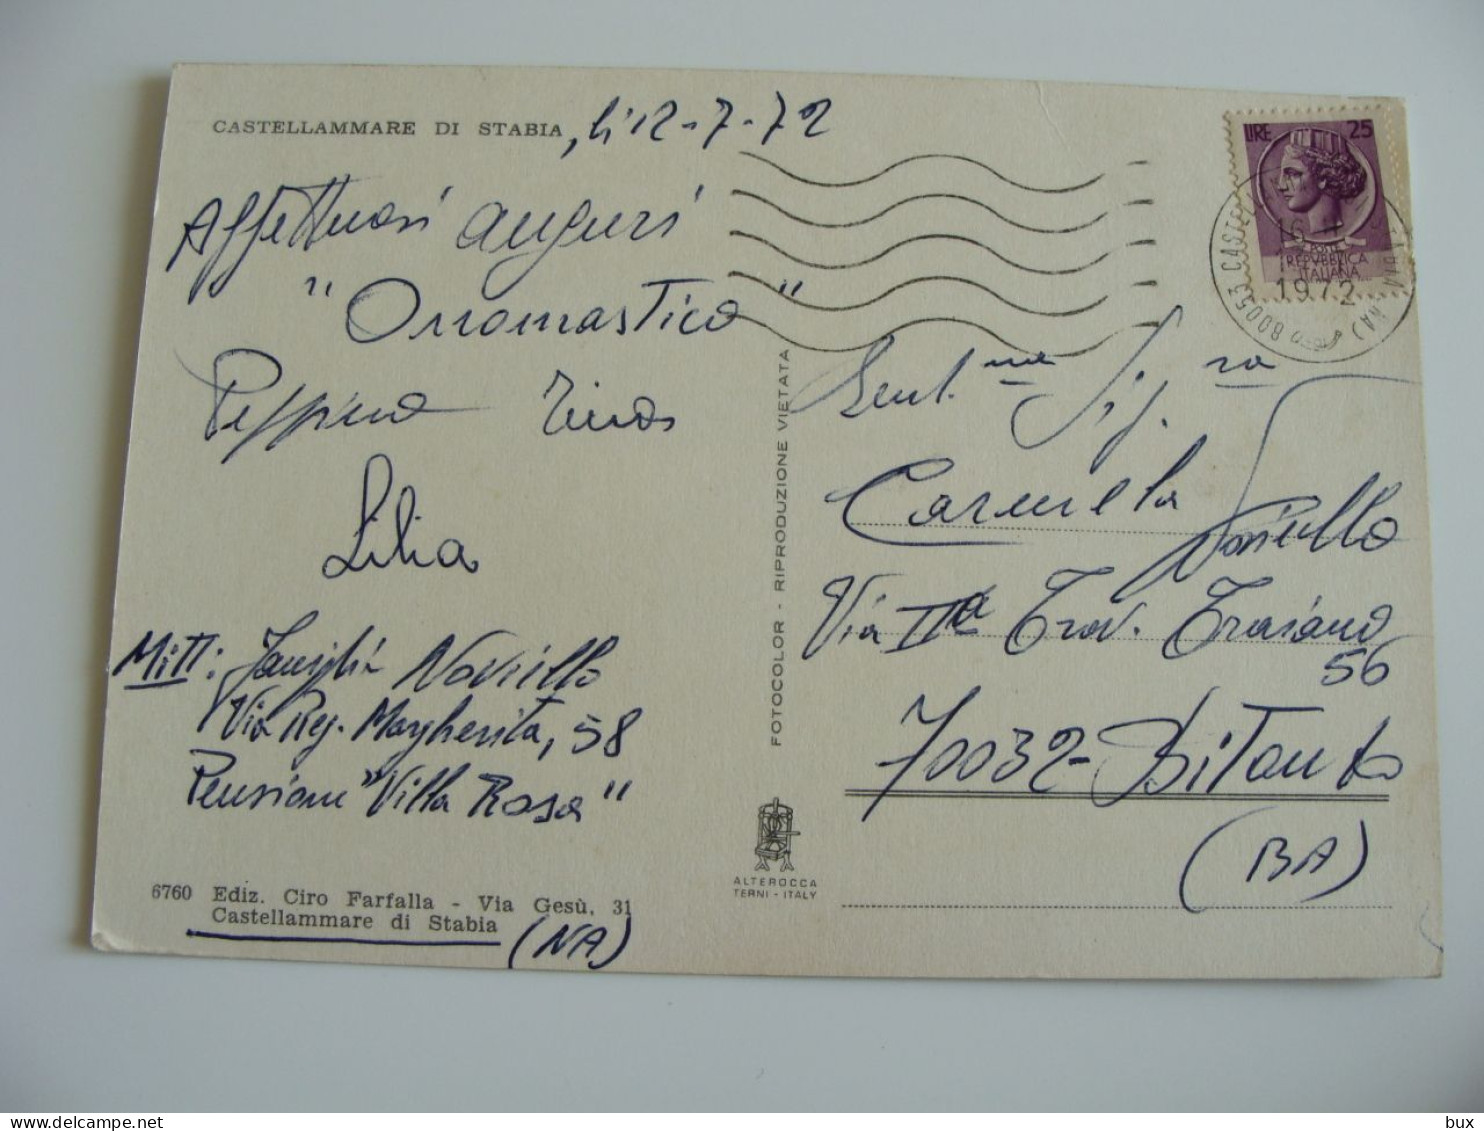 CASTELLAMMARE DI STABIA, li 12-7-72
Affettuosi auguri
"Onomastico"
Peppino
Lilia
Mitt: Noviello
Via Reg. Margherita, 58
Pensione "Villa Rosa"
6760 Ediz. Ciro Farfalla - Via Gesù, 31
Castellammare di Stabia (NA)
FOTOCOLOR - RIPRODUZIONE VIETATA
ALTEROCCA
TERNI - ITALY
LIRE 25
POSTE
REPVBBLICA
ITALIANA
1972
80053 CASTE
Gent.ma Sig.ra
Carmela Noviello
Via IIa Trav. Traiano
56
70032 - Bitonto
(BA)
bux